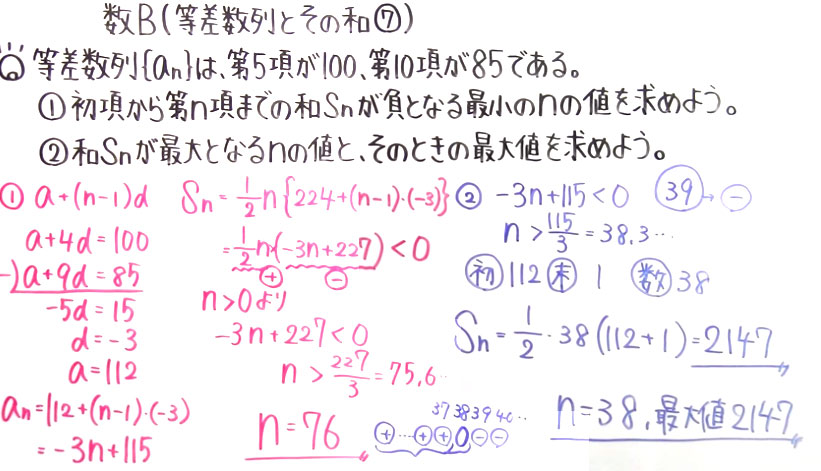 数B(等差数列とその和⑦)
等差数列{an}は、第5項が100、第10項が85である。
①初項から第n項までの和Snが負となる最小のnの値を求めよう。
②和Snが最大となるnの値と、そのときの最大値を求めよう。
① a+(n-1)d
a+4d=100
-)a+9d=85
-5d=15
d=-3
a=112
an=112+(n-1)・(-3)
=-3n+115
Sn=1/2n{224+(n-1)・(-3)}
=1/2n(-3n+227)<0
⊕ ⊖
n>0より
-3n+227<0
n>227/3=75.6…
n=76
② -3n+115<0 ㊴→⊖
n>115/3=38.3…
初 112 末 1 数 38
Sn=1/2・38(112+1)=2147
37 38 39 40…
⊕…⊕⊕0⊖⊖
n=38,最大値2147